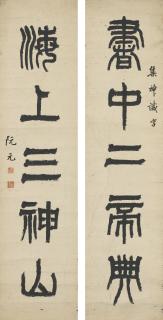 集神讖字
書中二帝典
海上三神山
阮元